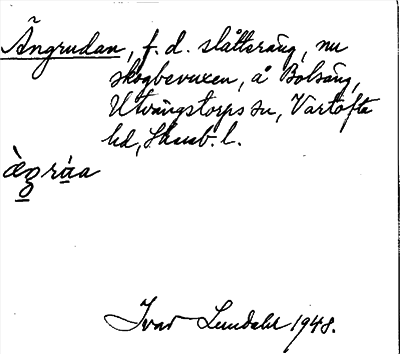 Ängrudan, f. d. slåtteräng, nu
skogbevuxen, å Bolsäng,
Utvängstorps sn, Vartofta
hd, Skarab. l.
ægráa
Ivar Lundahl 1948.